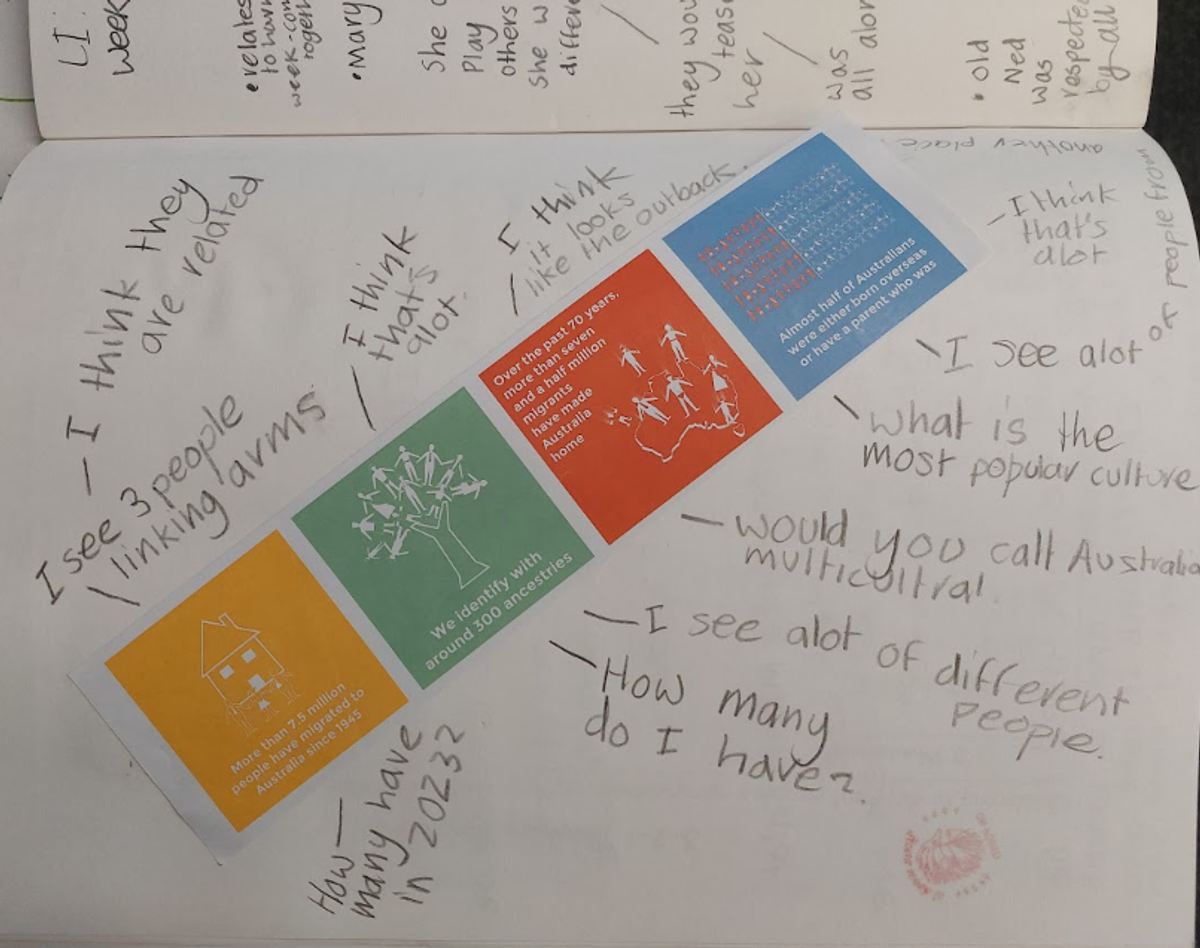 LI:
week
• relates
to havin
week-com
togeth
• Mary
She
Play
others
She w
differe
they wou
teas
her
was
all alon
• old
Ned
was
respecte
by all
I think they
are related
I see 3 people
linking arms
I think
that's
alot.
I think
it looks
like the outback.
I think
that's
alot
I see alot of people from
another place
what is the
most popular culture
would you call Australia
multicultral
I see alot of different
people.
How many
do I have?
How
many have
in 2023?
More than 7.5 million
people have migrated to
Australia since 1945
We identify with
around 300 ancestries
Over the past 70 years,
more than seven
and a half million
migrants
have made
Australia
home
Almost half of Australians
were either born overseas
or have a parent who was